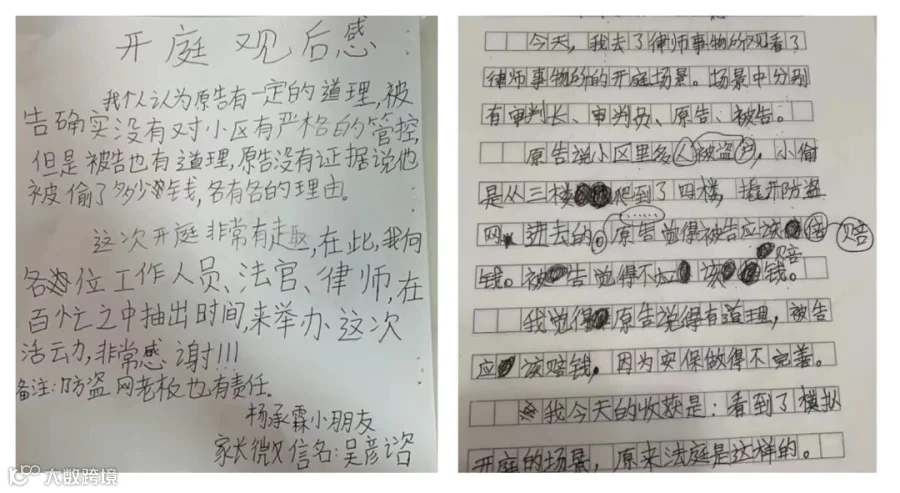 开庭观后感
我个人认为原告有一定的道理,被
告确实没有对小区有严格的管控,
但是被告也有道理,原告没有证据说他
被偷了多少钱,各有各的理由。
这次开庭非常有趣,在此,我向
各位工作人员、法官、律师,在
百忙之中抽出时间,来举办这次
活动,非常感谢!!!
备注:防盗网老板也有责任.
杨承霖小朋友
家长微信名:吴彦谘
今天,我去了律师事物所观看了
律师事物所的开庭场景。场景中分别
有审判长、审判员、原告、被告。
原告说小区里多人被盗,小偷
是从三楼爬到了四楼,撬开防盗
网进去的。原告觉得被告应该赔
钱。被告觉得不应该赔钱。
我觉得原告说得有道理,被告
应该赔钱,因为安保做得不完善。
我今天的收获是:看到了模拟
开庭的场景,原来法庭是这样的。
大数跨境